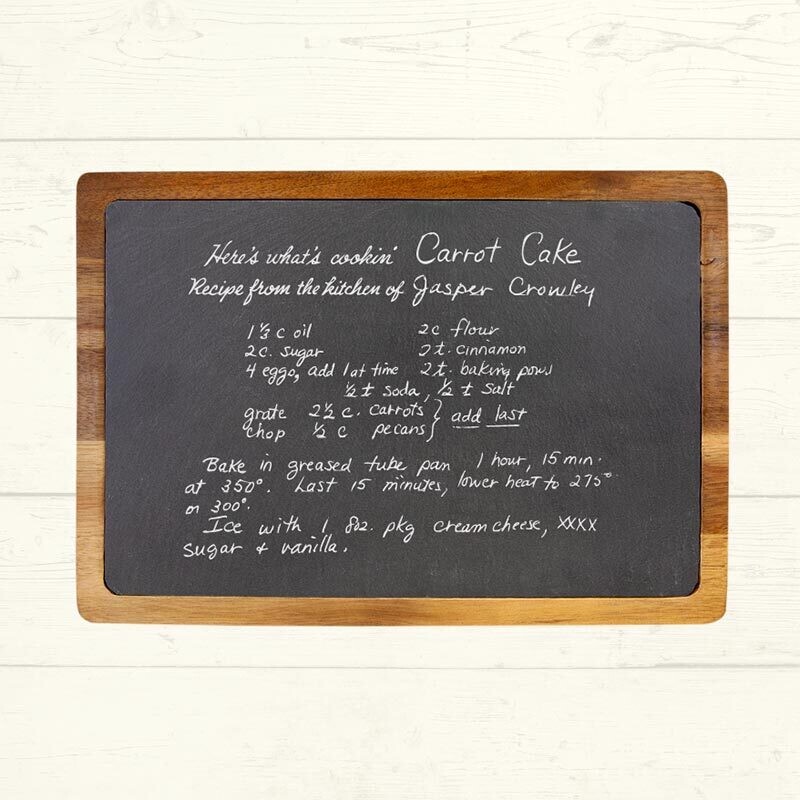 Here's what's cookin' Carrot Cake
Recipe from the kitchen of Jasper Crowley
1 1/3 c oil 2c flour
2c. sugar 2t. cinnamon
4 eggs, add 1 at time 2t. baking powd
1/2 t soda, 1/2 t salt
grate 2 1/2 c. carrots } add last
chop 1/2 c pecans
Bake in greased tube pan 1 hour, 15 min.
at 350°. Last 15 minutes, lower heat to 275°
or 300°.
Ice with 1 8oz. pkg cream cheese, XXXX
sugar & vanilla.